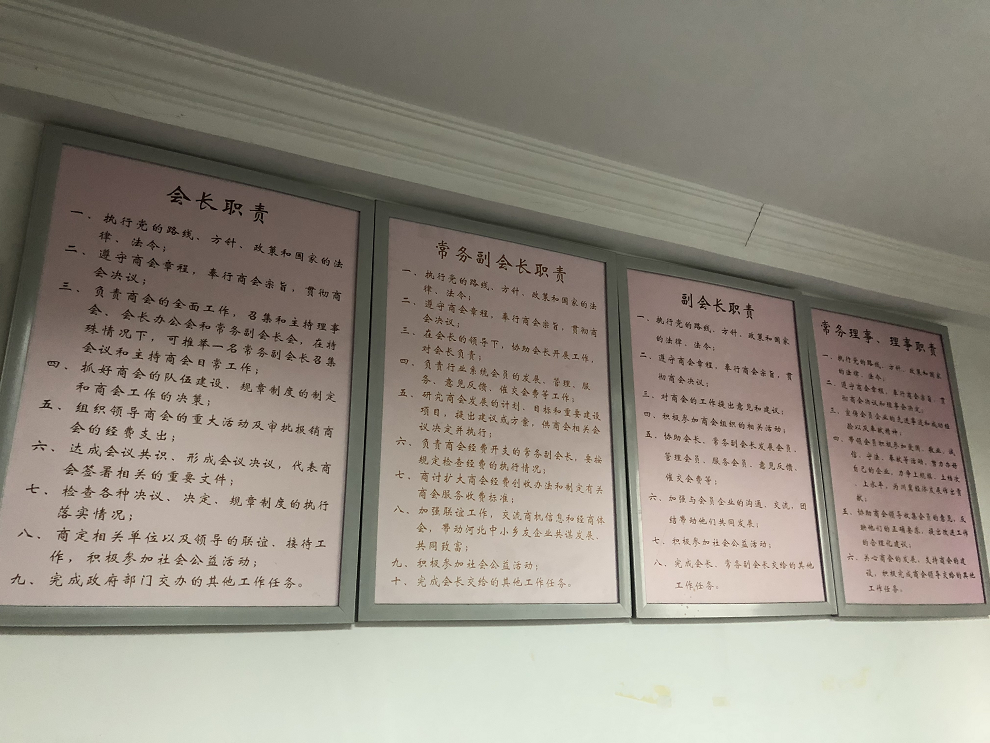 会长职责
一、执行党的路线、方针、政策和国家的法
律、法令；
二、遵守商会章程，奉行商会宗旨，贯彻商
会决议；
三、负责商会的全面工作，召集和主持理事
会、会长办公会和常务副会长会，在特
殊情况下，可推举一名常务副会长召集
会议和主持商会日常工作；
四、抓好商会的队伍建设、规章制度的制定
和商会工作的决策；
五、组织领导商会的重大活动及审批报销商
会的经费支出；
六、达成会议共识、形成会议决议，代表商
会签署相关的重要文件；
七、检查各种决议、决定、规章制度的执行
落实情况；
八、商定相关单位以及领导的联谊、接待工
作，积极参加社会公益活动；
九、完成政府部门交办的其他工作任务。
常务副会长职责
一、执行党的路线、方针、政策和国家的法
律、法令；
二、遵守商会章程，奉行商会宗旨，贯彻商
会决议；
三、在会长的领导下，协助会长开展工作，
对会长负责；
四、负责行业系统会员的发展、管理、服
务、意见反馈、催交会费等工作；
五、研究商会发展的计划、目标和重要建设
项目，提出建议或方案，供商会相关会
议决定并执行；
六、负责商会经费开支的常务副会长，要按
规定检查经费的执行情况；
七、商讨扩大商会经费创收办法和制定有关
商会服务收费标准；
八、加强联谊工作，交流商机信息和经商体
会，带动河北中小乡友企业共谋发展、
共同致富；
九、积极参加社会公益活动；
十、完成会长交给的其他工作任务。
副会长职责
一、执行党的路线、方针、政策和国家
的法律，法令；
二、遵守商会章程，奉行商会宗旨，贯
彻商会决议；
三、对商会的工作提出意见和建议；
四、积极参加商会组织的相关活动；
五、协助会长、常务副会长发展会员、
管理会员、服务会员、意见反馈、
催交会费等；
六、加强与会员企业的沟通、交流，团
结带动他们共同发展；
七、积极参加社会公益活动；
八、完成会长、常务副会长交给的其他
工作任务。
常务理事、理事职责
一、执行党的路线、方针、政策和国家
的法律、法令；
二、遵守商会章程，奉行商会宗旨，贯
彻商会决议和理事会决定；
三、宣传会员企业的先进事迹和成功经
验以及奉献精神；
四、带领会员积极参加
信、守法、奉献等活动，努力办好
自己的企业，力争
上水平，为
献；
五、协助商会领导收集会员的意见，反
映他们的正确要求，提出改进工作
的合理化建议；
六、关心商会的发展、支持商会的建
设，积极完成商会领导交给的其他
工作任务。